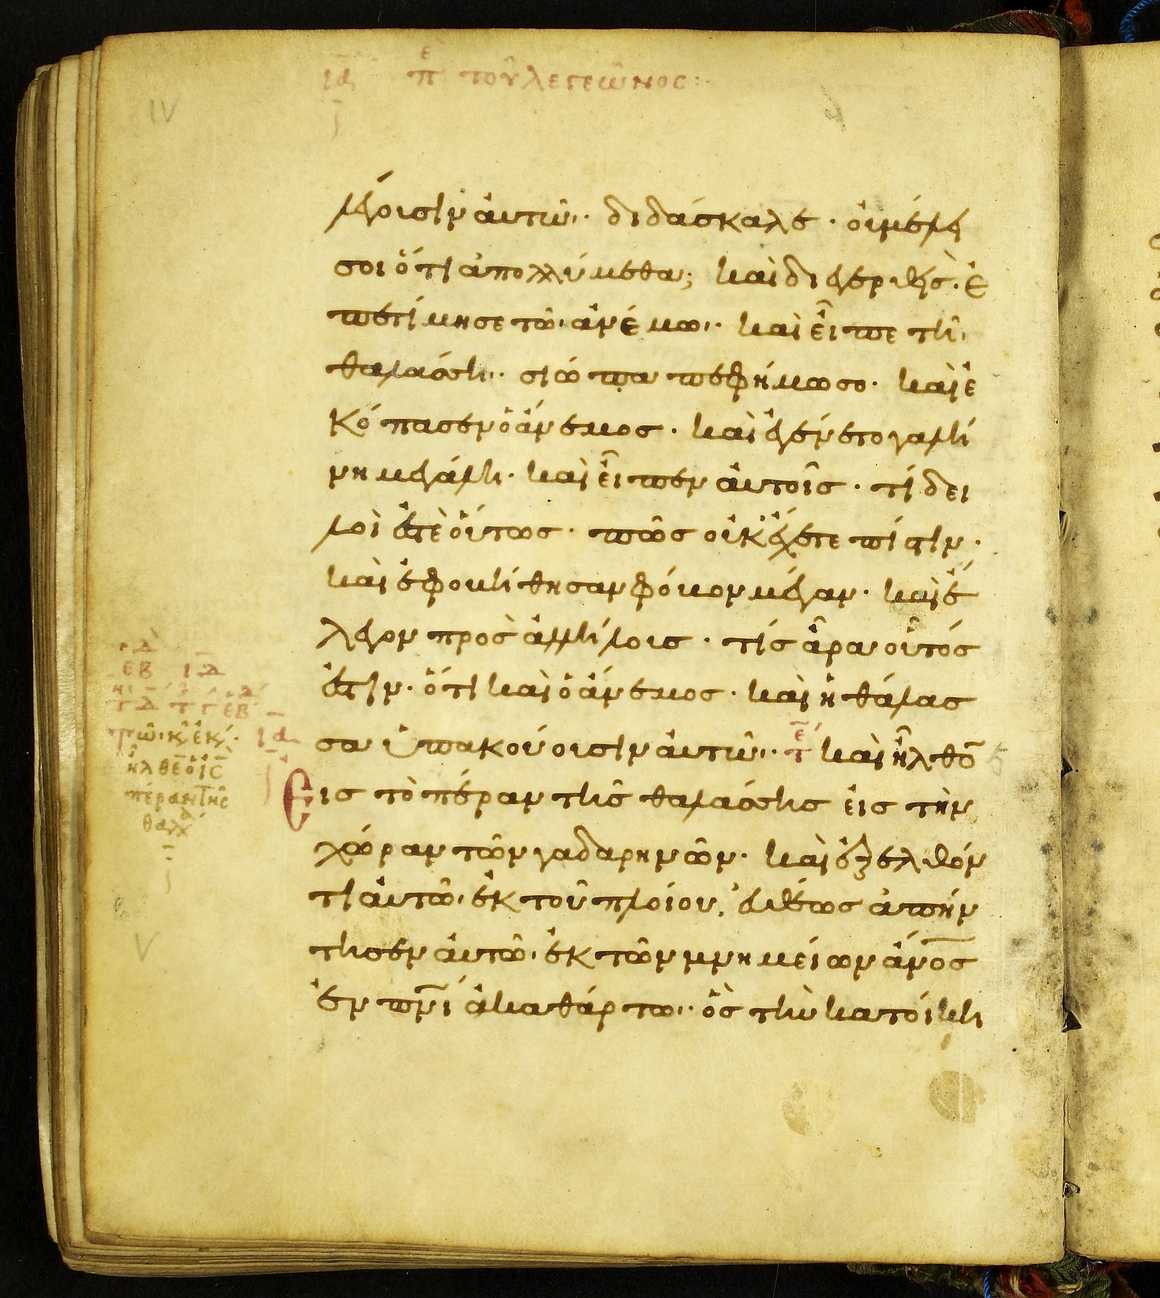 ια πε του λεγεωνος:
λέγουσιν ἀυτῶ· διδάσκαλε· οὐ μέλει
σοι ὅτι ἀπολλύμεθα; καὶ διεγερθεὶς· ἐ
πετίμησε τῶ ἀνέμω· καὶ εἶπε τῆ
θαλάσση· σιώπα πεφήμωσο· καὶ ἐ
κόπασεν ὁ ἄνεμος· καὶ ἐγένετο γαλή
νη μεγάλη· καὶ εἶπεν ἀυτοῖς· τί δει
λοὶ ἐστὲ οὕτως· πῶς οὐκ ἔχετε πίστιν·
καὶ ἐφοβήθησαν φόβον μέγαν· καὶ ἔ
λεγον πρὸς ἀλλήλους· τίς ἄρα οὗτός
ἐστιν· ὅτι καὶ ὁ ἄνεμος· καὶ ἡ θάλασ
σα ὑπακούουσιν ἀυτῶ· τε καὶ ἦλθον
Εἰς τὸ πέραν τῆς θαλάσσης εἰς τὴν
χώραν τῶν γαδαρηνῶν· καὶ ἐξελθόν
τι ἀυτῶ ἐκ τοῦ πλοίου, ἐυθέως ἀπήν
τησεν ἀυτῶ ἐκ τῶν μνημείων ἄνος
ἐν πνι ἀκαθάρτω· ὃς τὴν κατοίκη
ια
τω κ, ἐκ,
ηλθεν ὁ ις
πέραν της
θαλ